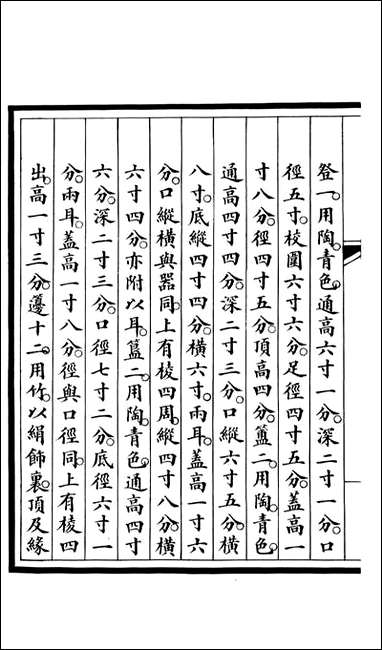 登一用陶青色通高六寸一分深二寸一分口
徑五寸校圍六寸六分足徑四寸五分蓋高一
寸八分徑四寸五分頂高四分簠二用陶青色
通高四寸四分深二寸三分口縱六寸五分橫
八寸底縱四寸四分橫六寸兩耳蓋高一寸六
分口縱橫與器同上有棱四周縱四寸八分橫
六寸四分亦附以耳簋二用陶青色通高四寸
六分深二寸三分口徑七寸二分底徑六寸一
分兩耳蓋高一寸八分徑與口徑同上有棱四
出高一寸三分籩十二用竹以絹飾裏頂及緣